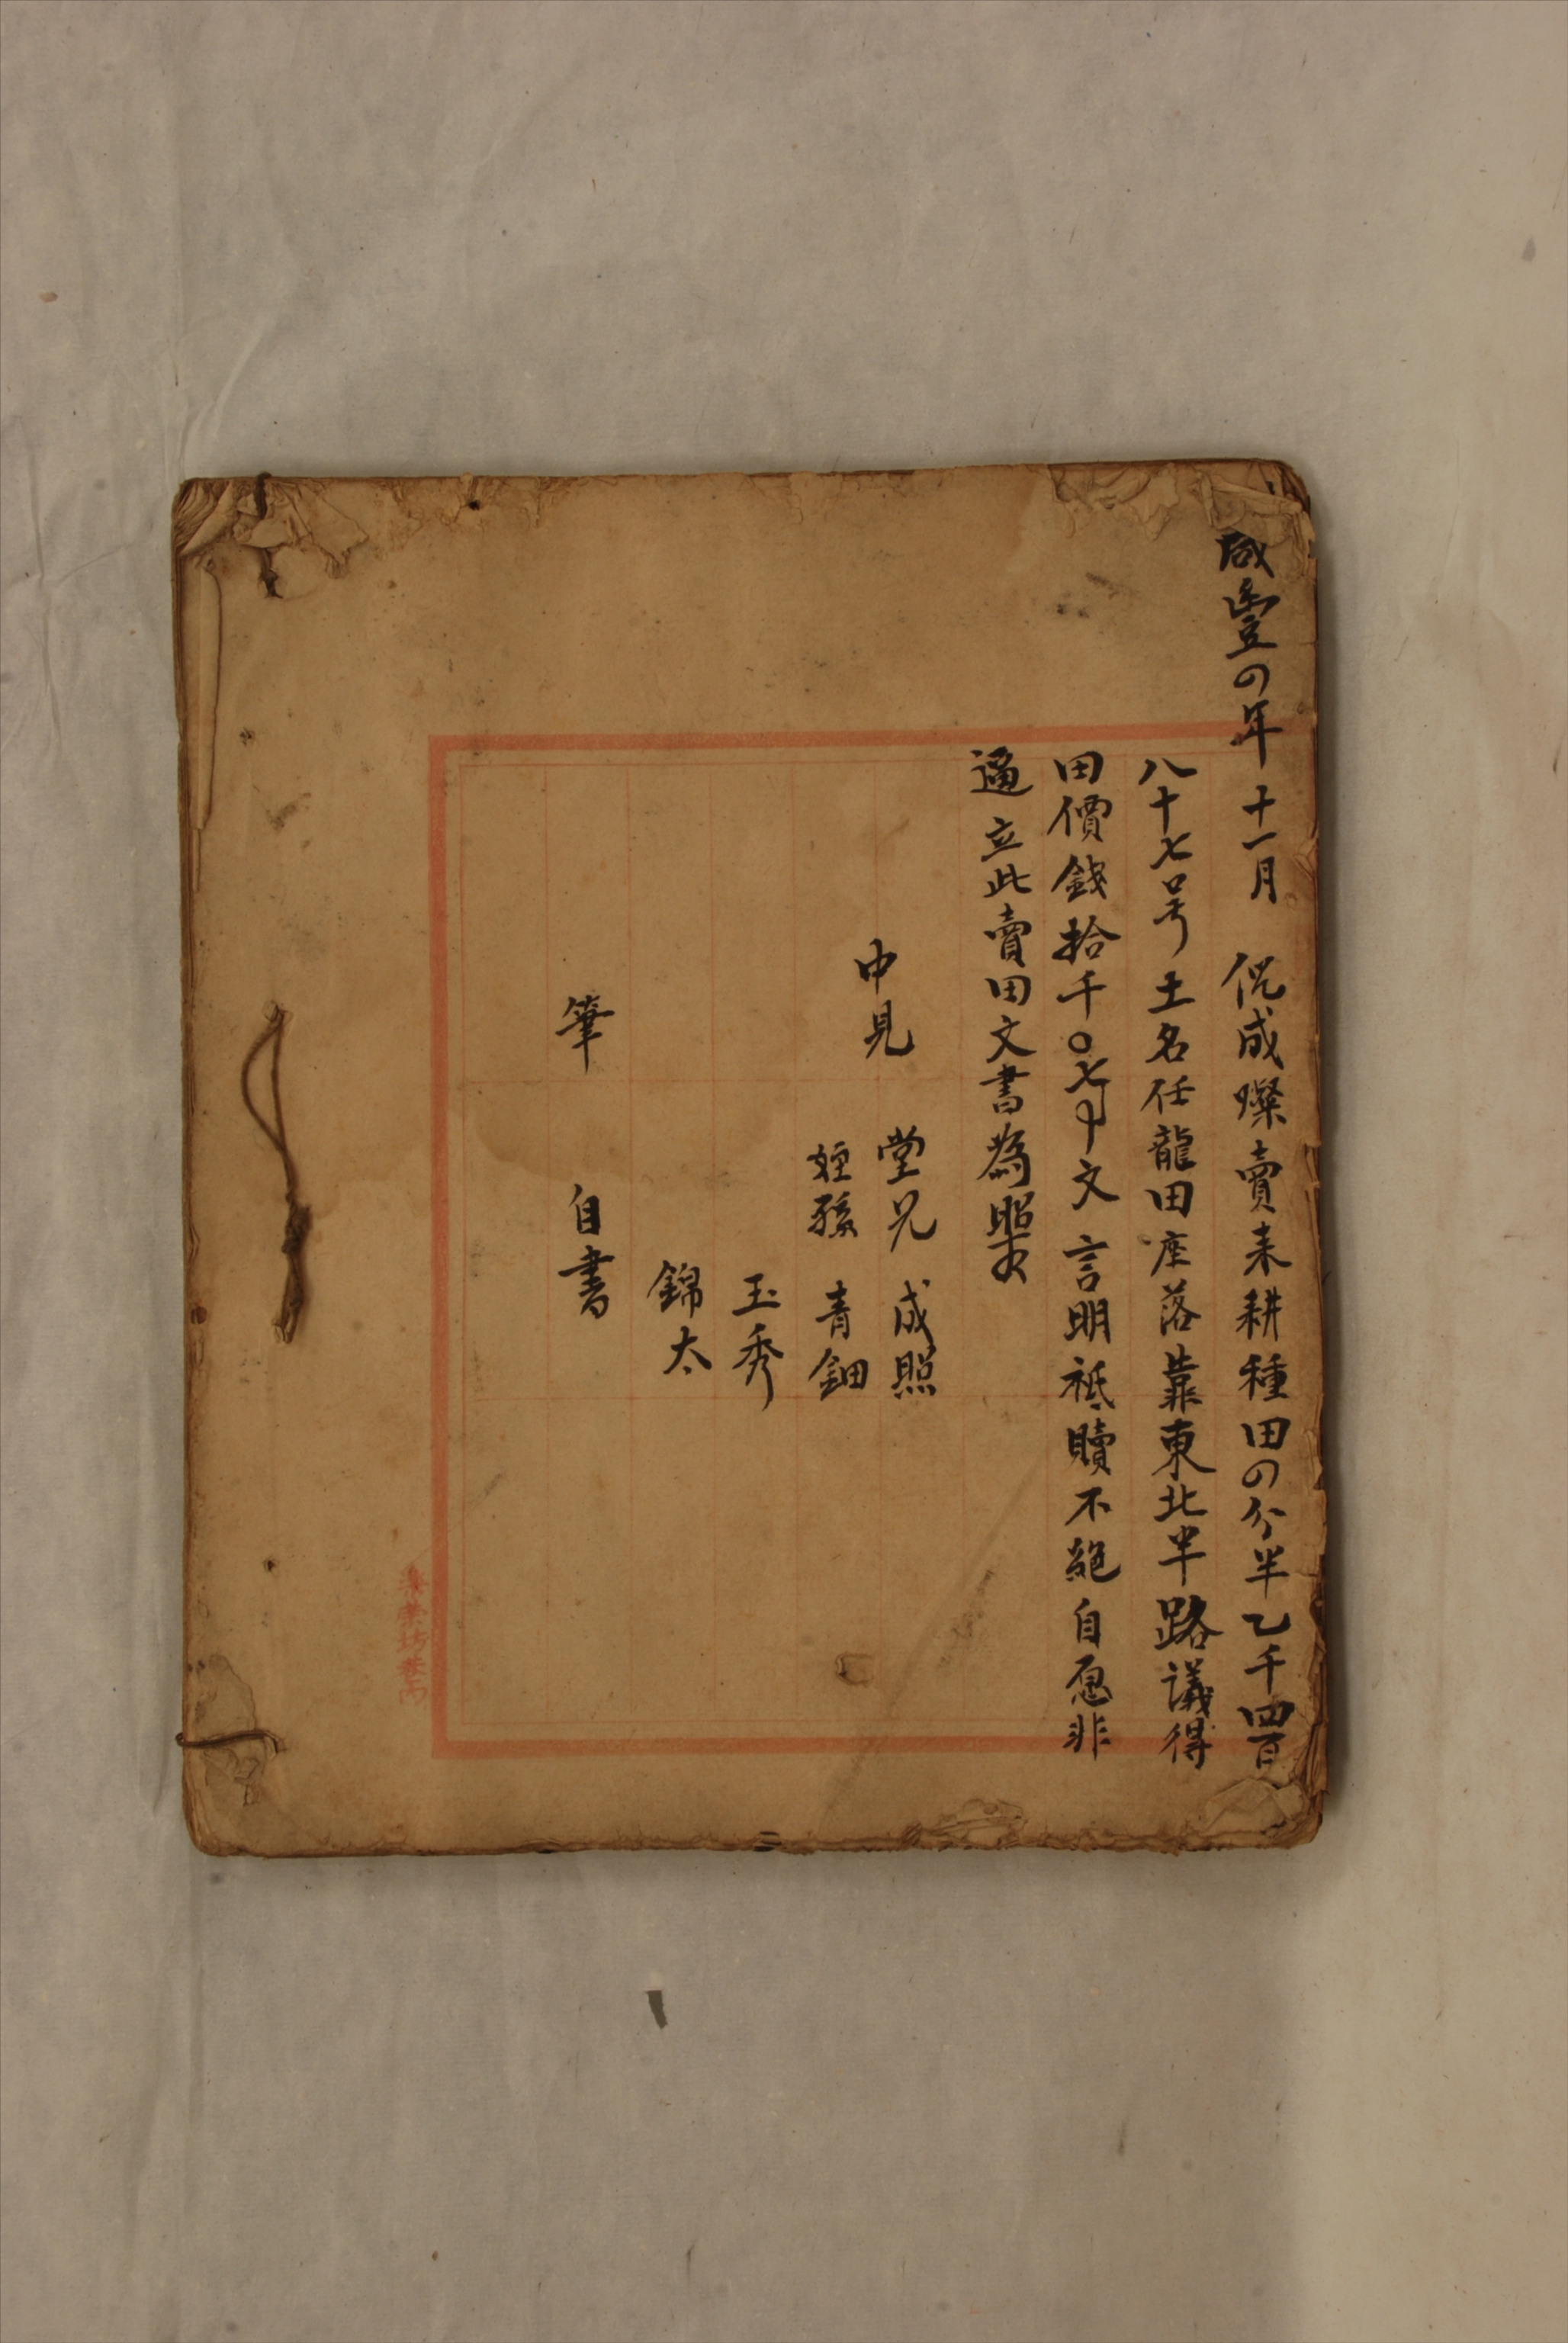 咸豐四年十一月 侃成燦賣来耕種田四分半乙千四百
八十七号土名任龍田座落靠東北半路議得
田價錢拾千〇七十文言明祗贖不絕自愿非
逼立此賣田文書為照
中見 堂兄 成照
姪孫 青鈿
玉秀
錦太
筆 自書